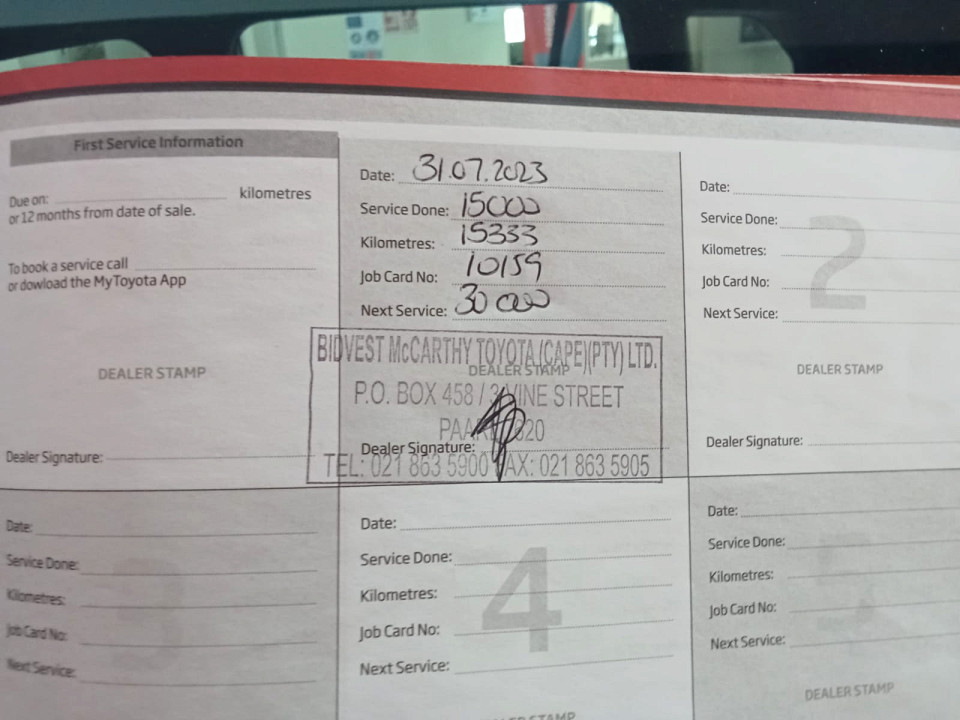 First Service Information
Due on: kilometres
or 12 months from date of sale.
To book a service call
or dowload the MyToyota App
DEALER STAMP
Dealer Signature:
Date: 31.07.2023
Service Done: 15000
Kilometres: 15333
Job Card No: 10159
Next Service: 30 000
BIDVEST McCARTHY TOYOTA (CAPE)(PTY) LTD.
DEALER STAMP
P.O. BOX 458 / VINE STREET
Dealer Signature:
TEL: 021 863 5900 FAX: 021 863 5905
2
Date:
Service Done:
Kilometres:
Job Card No:
Next Service:
DEALER STAMP
Dealer Signature:
Date:
Service Done:
Kilometres:
Job Card No:
Next Service:
4
Date:
Service Done:
Kilometres:
Job Card No:
Next Service:
DEALER STAMP
Date:
Service Done:
Kilometres:
Job Card No:
Next Service:
DEALER STAMP